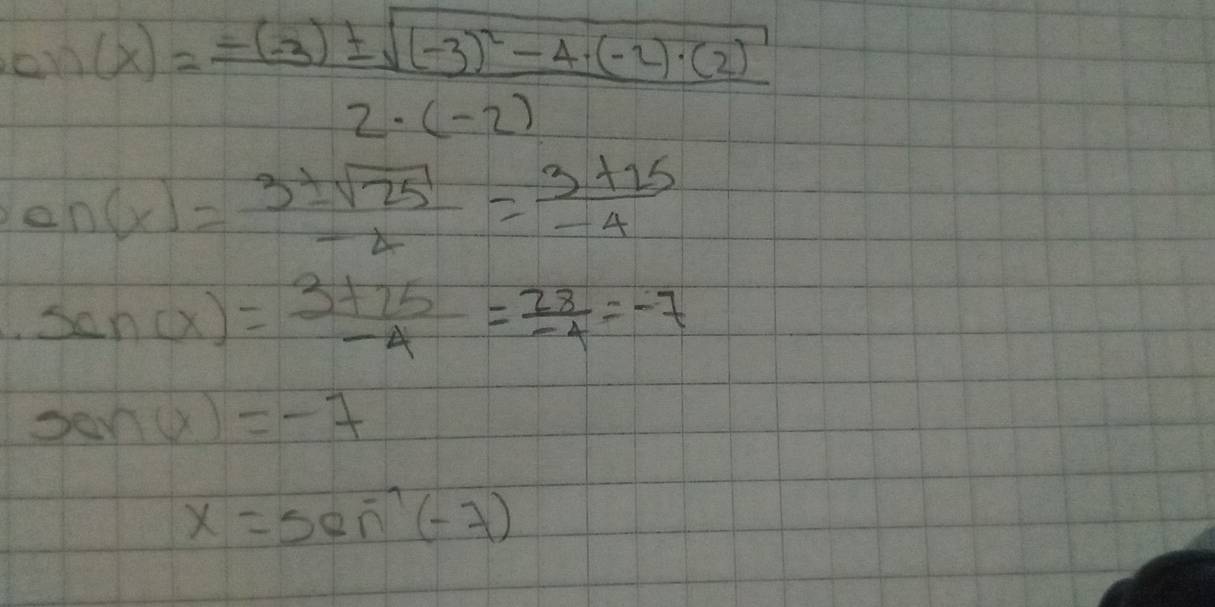 en(x) = -(-3) ± √(-3)² - 4·(-2)·(2) / 2·(-2)
en(x) = 3±√25 / -4 = 3+25 / -4
. sen(x) = 3+25 / -4 = 28 / -4 = -7
sen(x) = -7
x = sen⁻¹(-7)